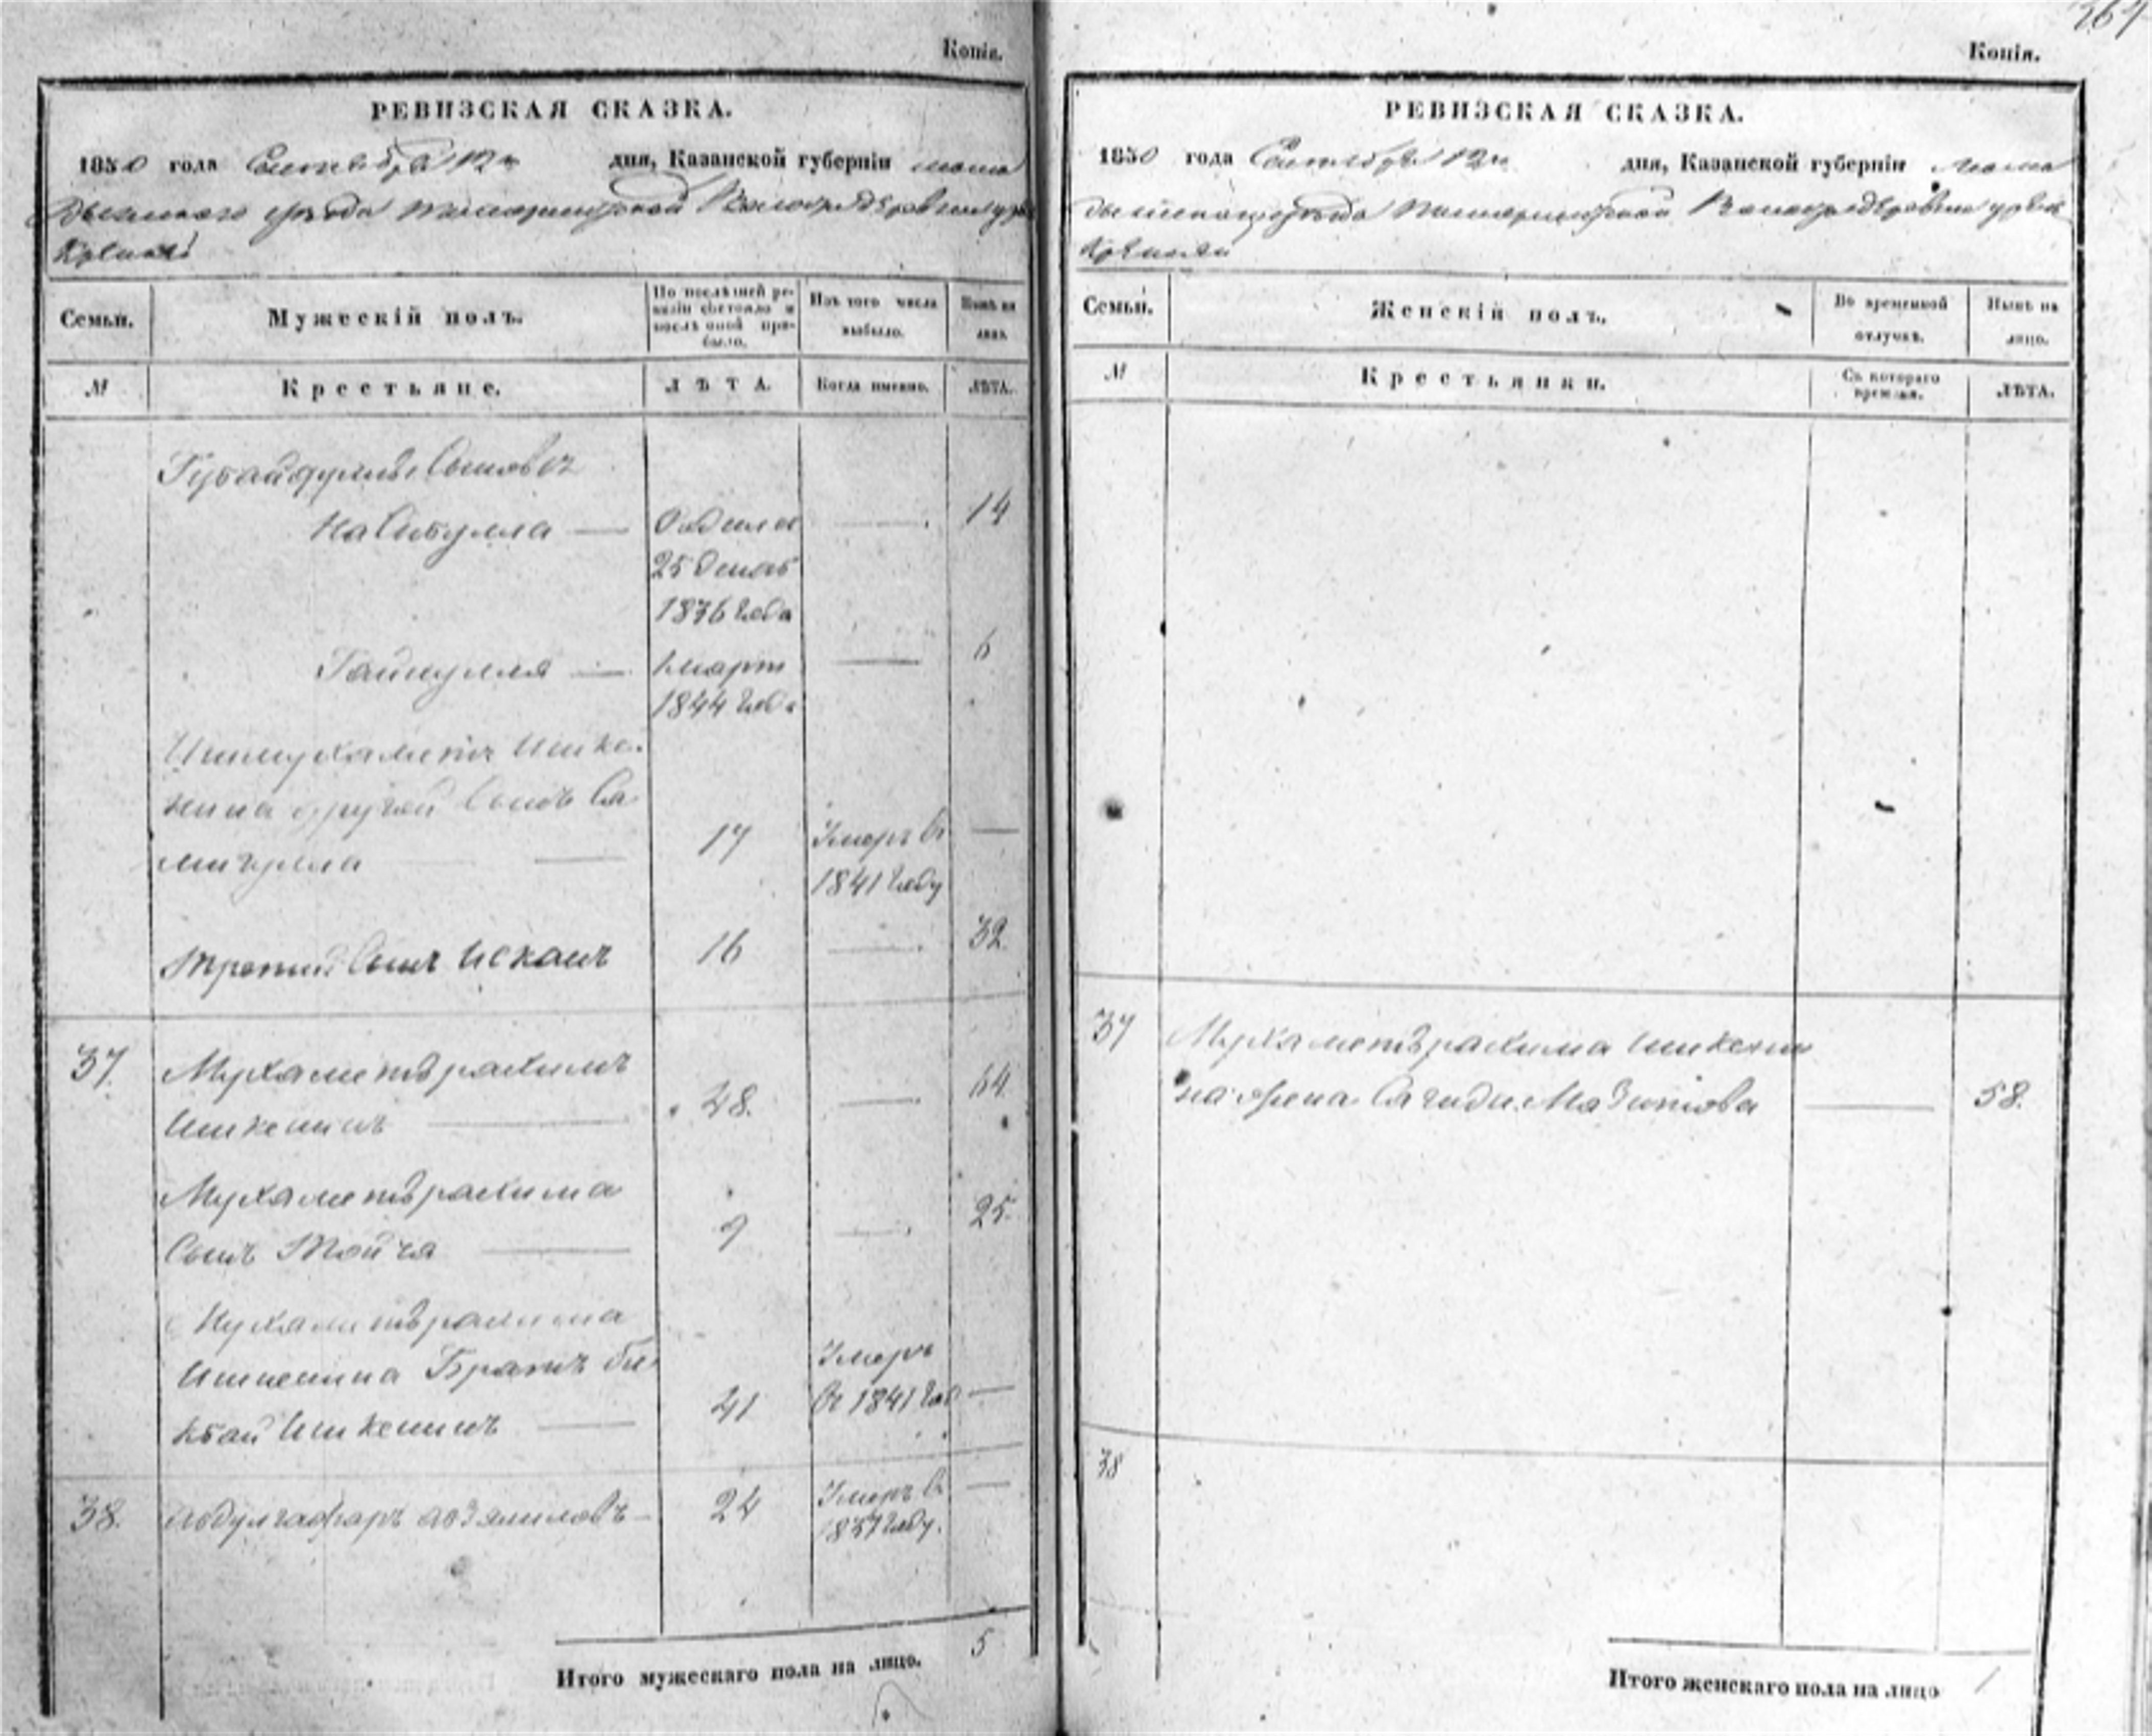 Копія.
РЕВИЗСКАЯ СКАЗКА.
1850 года Сентября 12 дня, Казанской губерніи мама
дышскаго уѣзда волости деревни
Семьи.
Мужескій полъ.
По послѣдней ре-
визіи состояло и
послѣ оной при-
было.
Изъ того числа
выбыло.
Нынѣ на
лицо.
№
Крестьяне.
ЛѢТА.
Когда именно.
ЛѢТА.
Губайдуллы Сыновья
Набиулла — Родился — 14
25 декаб
1836 года
— 6
март
1844 года
Ишмухаметъ Ишке-
нина другой Сынъ Са-
мигулла — 17 Умеръ въ —
1841 году
Третий Сынъ Исхакъ 16 — 32.
37. Мухаметрахимъ
Ишкенинъ — 48. — 64.
Мухаметрахима
Сынъ Тойчя — 9 — 25.
Мухаметрахима
Ишкенина Братъ Би-
кбай Ишкенинъ — 41 Умеръ
въ 1841 год —
38. Абдулгафаръ Абзялиловъ — 24 Умеръ въ —
1837 году.
Итого мужескаго пола на лицо. 5
Копія.
РЕВИЗСКАЯ СКАЗКА.
1850 года Сентября 12 дня, Казанской губерніи мама
дышскаго уѣзда волости деревни
Семьи.
Женскій полъ.
Во временной
отлучкѣ.
Нынѣ на
лицо.
№
Крестьянки.
Съ котораго
времени.
ЛѢТА.
37 Мухаметрахима Ишкени
на жена Сагида — 58.
38
Итого женскаго пола на лицо 1